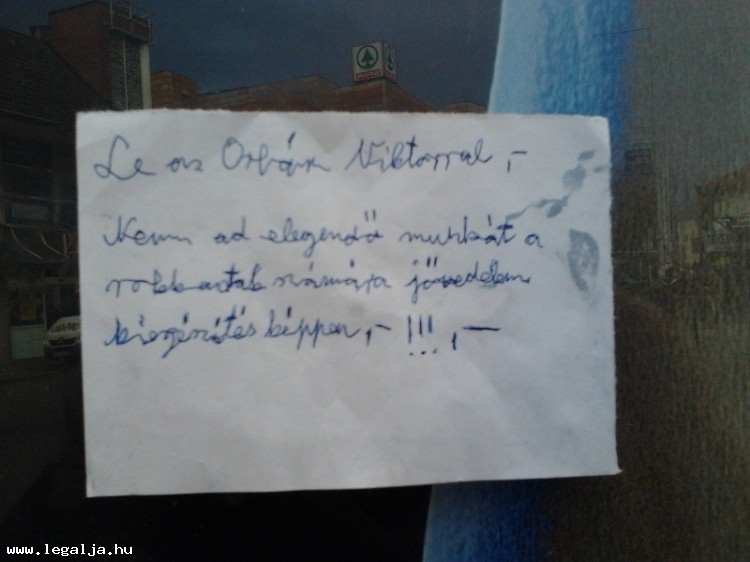 SPAR
Le az Orbán Viktorral,-
Nem ad elegendő munkát a
rokkantak számára jövedelem
kiegészítés képpen,- !!!,-
www.legalja.hu